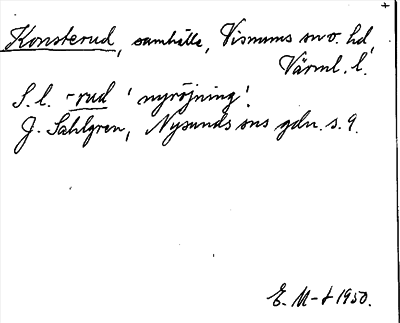 +
Konsterud, samhälle, Visnums sn o. hd,
Värml. l.
S. l. -rud 'nyröjning'.
J. Sahlgren, Nysunds sns gdn. s. 9.
E. M-t 1950.